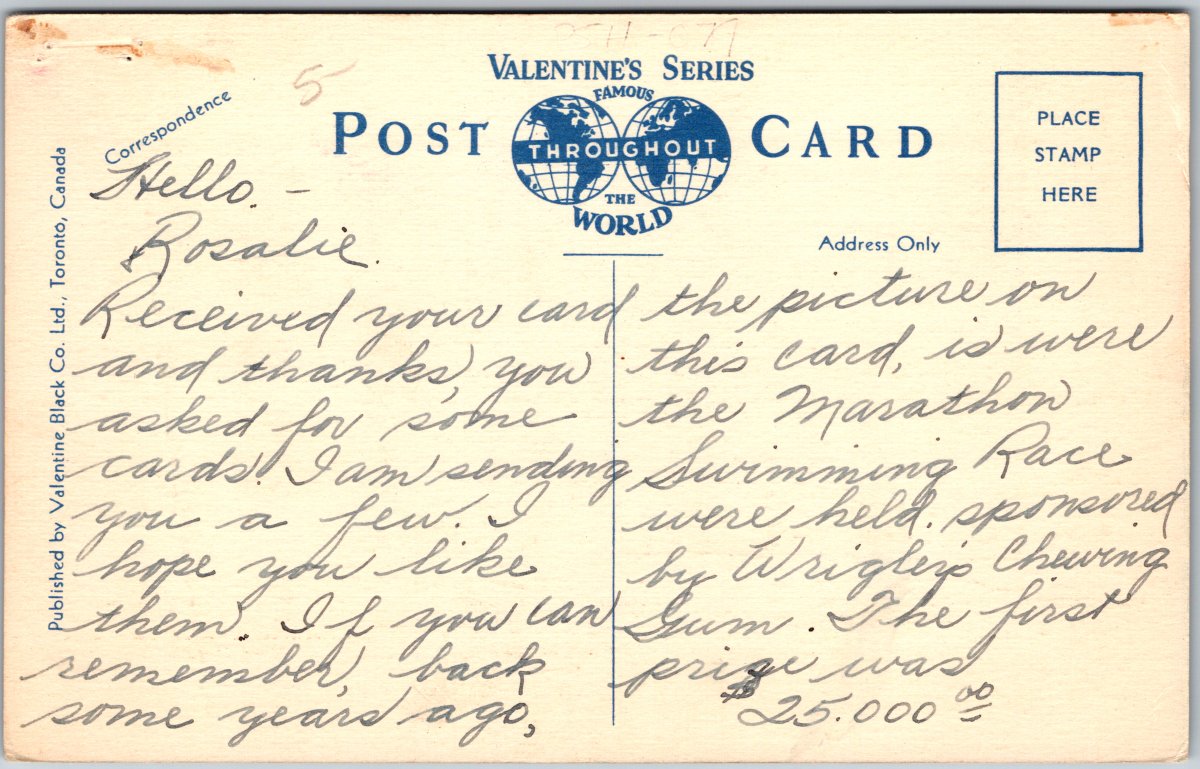 VALENTINE'S SERIES
FAMOUS
POST CARD
THROUGHOUT
THE
WORLD
PLACE
STAMP
HERE
Address Only
Correspondence
Published by Valentine Black Co. Ltd., Toronto, Canada
5
Hello. –
Rosalie.
Received your card
and thanks, you
asked for some
cards. I am sending
you a few. I
hope you like
them. If you can
remember, back
some years ago,
the picture on
this card, is were
the Marathon
Swimming Race
were held. sponsored
by Wrigleys Chewing
Gum. The first
prize was
$25.000 00